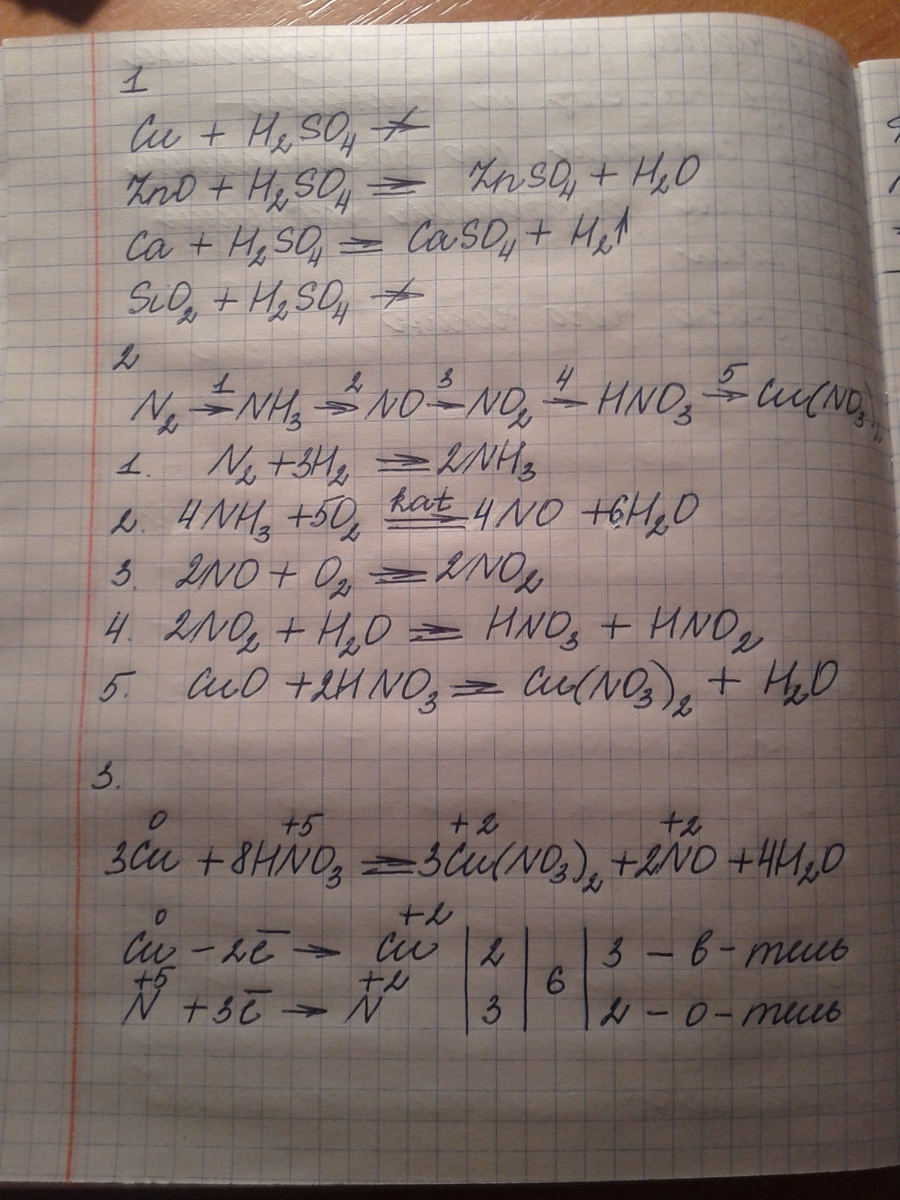 1
Cu + H₂SO₄ ≠>
ZnO + H₂SO₄ => ZnSO₄ + H₂O
Ca + H₂SO₄ => CaSO₄ + H₂↑
SiO₂ + H₂SO₄ ≠>
2
N₂ →¹ NH₃ →² NO →³ NO₂ →⁴ HNO₃ →⁵ Cu(NO₃)₂
1. N₂ + 3H₂ => 2NH₃
2. 4NH₃ + 5O₂ =kat=> 4NO + 6H₂O
3. 2NO + O₂ => 2NO₂
4. 2NO₂ + H₂O => HNO₃ + HNO₂
5. CuO + 2HNO₃ => Cu(NO₃)₂ + H₂O
3.
0 +5 +2 +2
3Cu + 8HNO₃ => 3Cu(NO₃)₂ + 2NO + 4H₂O
0 +2
Cu - 2ē → Cu | 2 | 6 | 3 - в-тель
+5 +2
N + 3ē → N | 3 | | 2 - о-тель